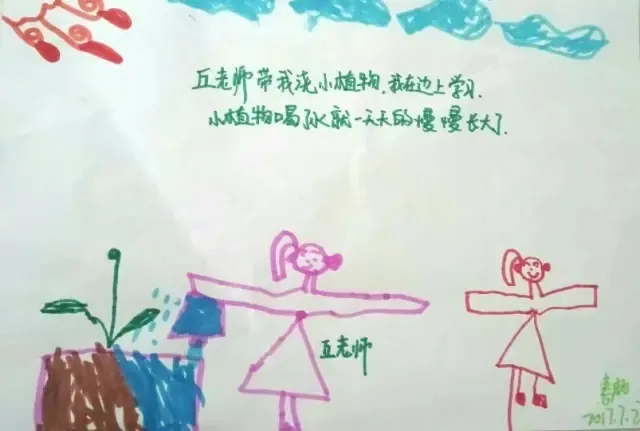 丘老师带我浇小植物,我在边上学习.
小植物喝了水就一天天的慢慢长大了.
丘老师
2017.7.2